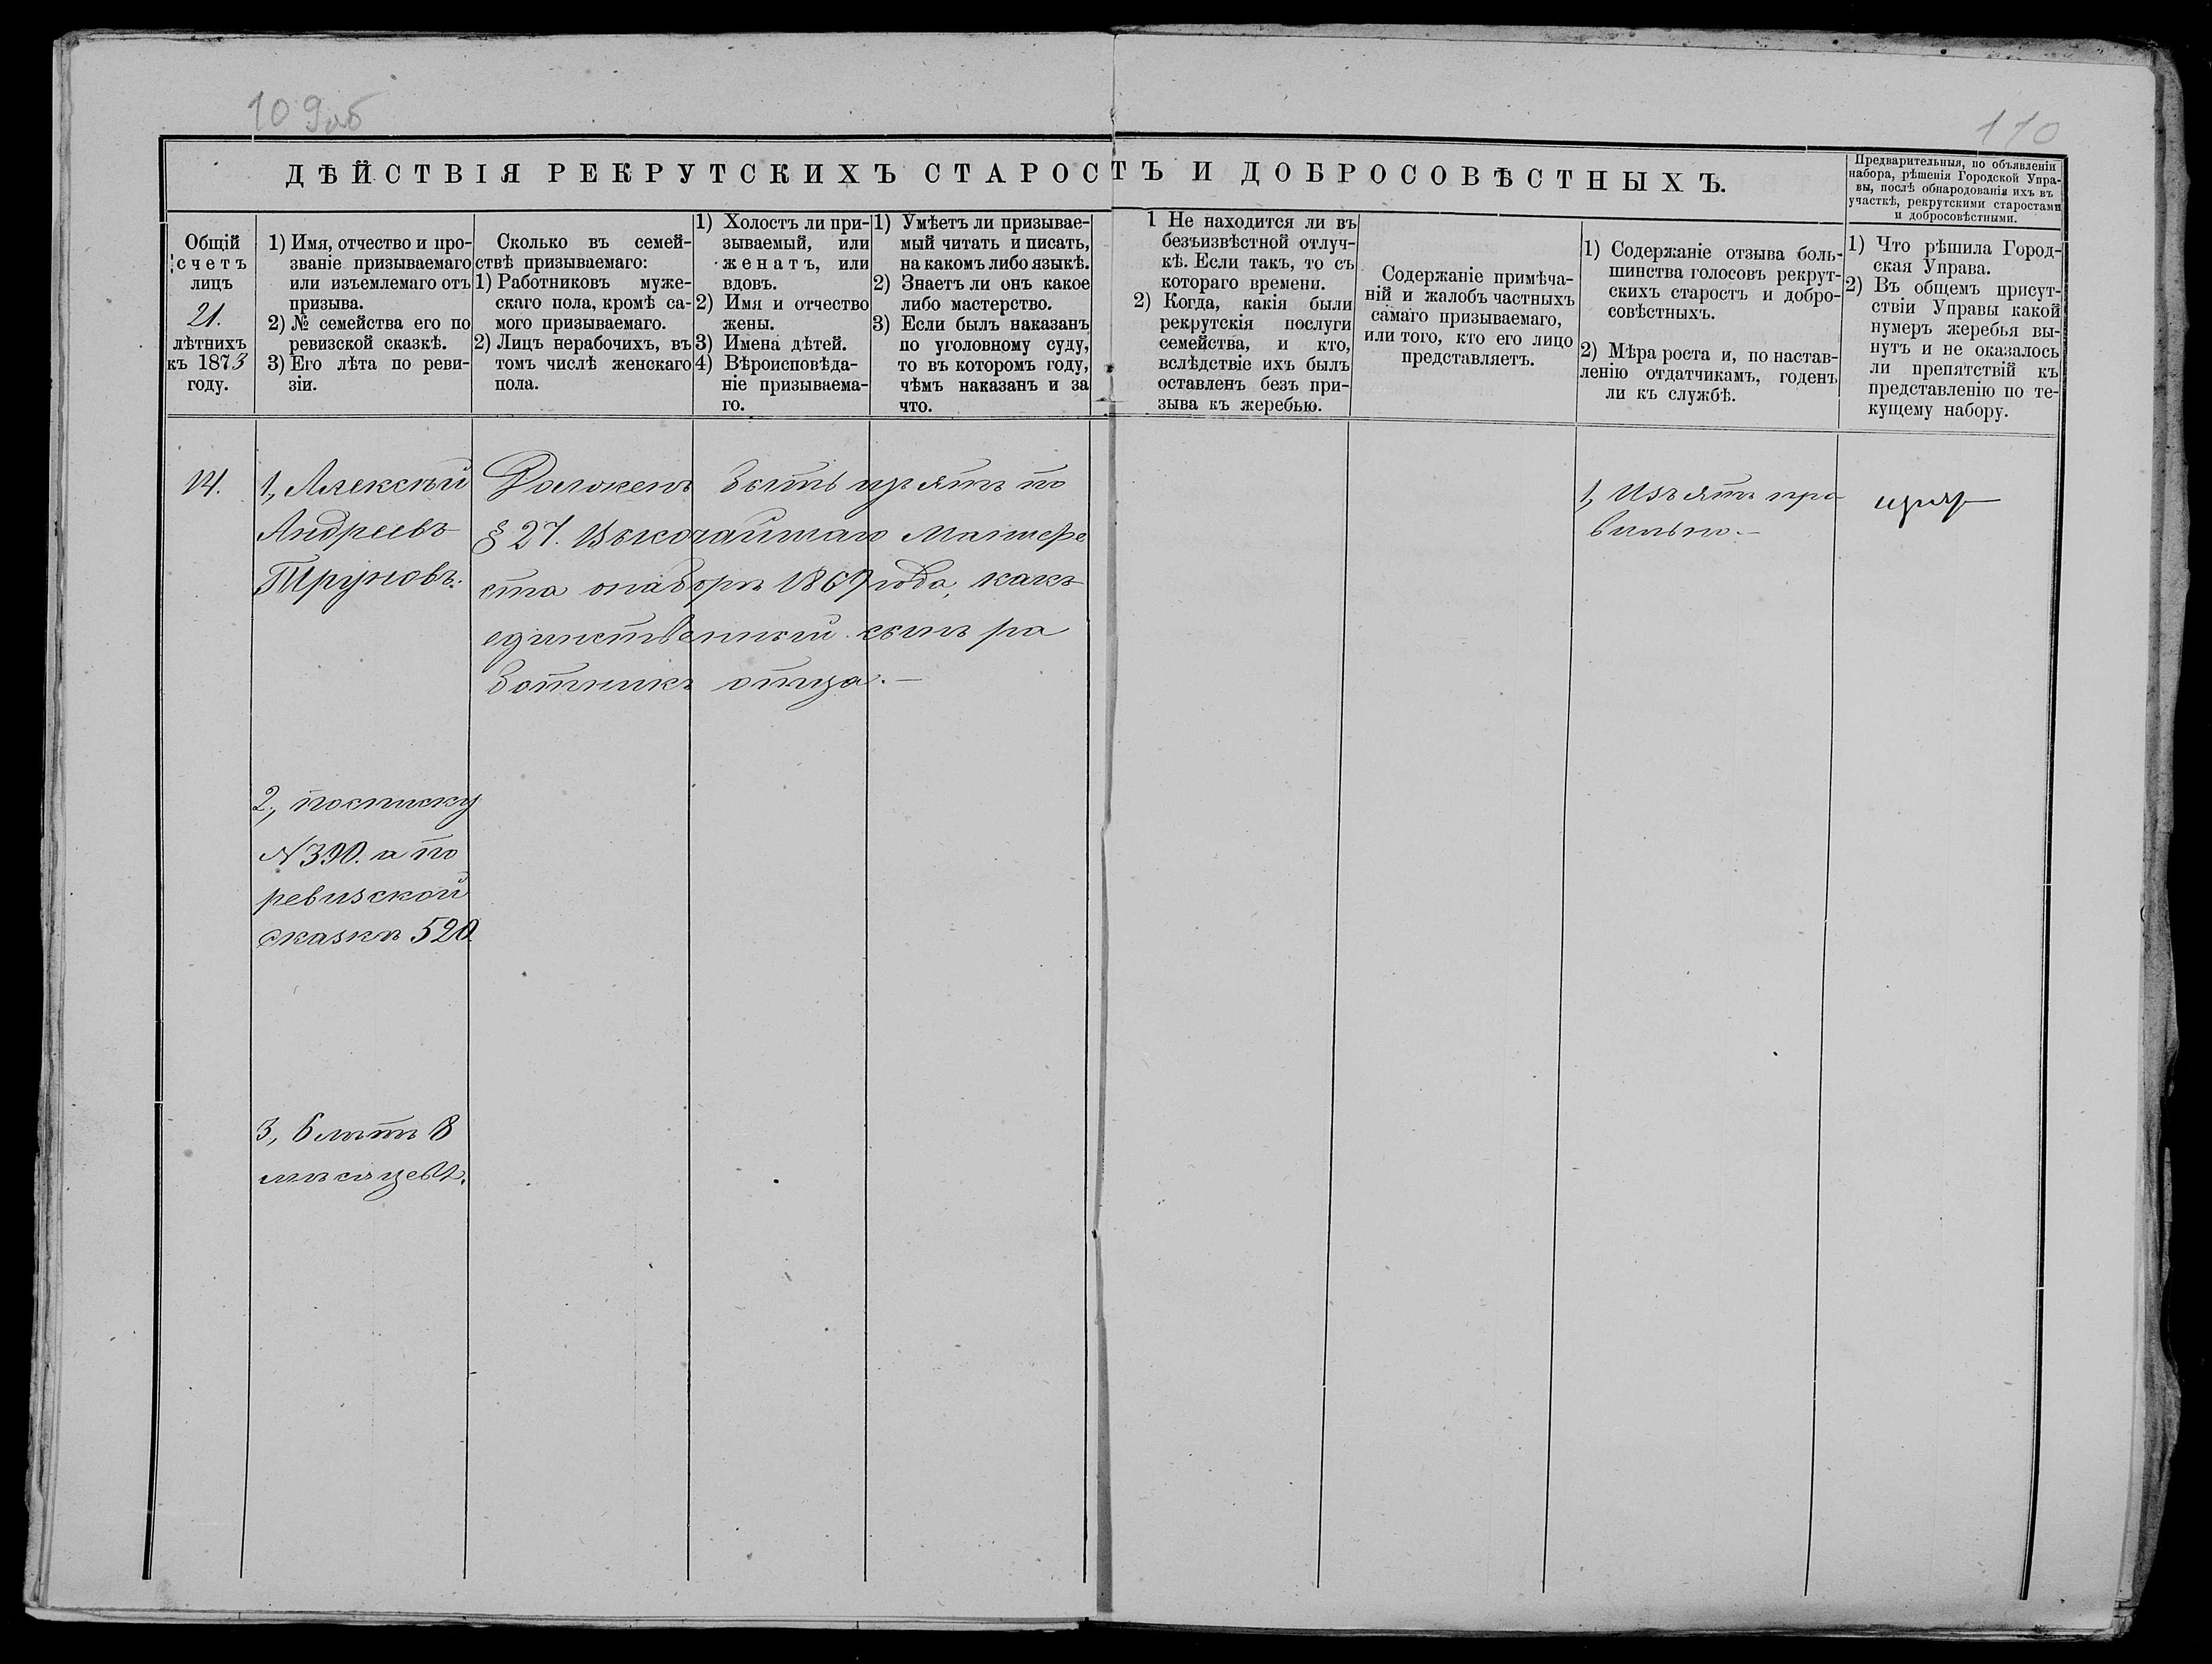 109об
110
ДѢЙСТВІЯ РЕКРУТСКИХЪ СТАРОСТЪ И ДОБРОСОВѢСТНЫХЪ.
Предварительныя, по объявленіи
набора, рѣшенія Городской Упра-
вы, послѣ обнародованія ихъ въ
участкѣ, рекрутскими старостами
и добросовѣстными.
Общій
счетъ
лицъ
21.
лѣтнихъ
къ 1873
году.
1) Имя, отчество и про-
званіе призываемаго
или изъемлемаго отъ
призыва.
2) № семейства его по
ревизской сказкѣ.
3) Его лѣта по реви-
зіи.
Сколько въ семей-
ствѣ призываемаго:
1) Работниковъ муже-
скаго пола, кромѣ са-
мого призываемаго.
2) Лицъ нерабочихъ, въ
томъ числѣ женскаго
пола.
1) Холостъ ли при-
зываемый, или
женатъ, или
вдовъ.
2) Имя и отчество
жены.
3) Имена дѣтей.
4) Вѣроисповѣда-
ніе призываема-
го.
1) Умѣетъ ли призывае-
мый читать и писать,
на какомъ либо языкѣ.
2) Знаетъ ли онъ какое
либо мастерство.
3) Если былъ наказанъ
по уголовному суду,
то въ которомъ году,
чѣмъ наказанъ и за
что.
1 Не находится ли въ
безъизвѣстной отлуч-
кѣ. Если такъ, то съ
котораго времени.
2) Когда, какія были
рекрутскія послуги
семейства, и кто,
вслѣдствіе ихъ былъ
оставленъ безъ при-
зыва къ жеребью.
Содержаніе примѣча-
ній и жалобъ частныхъ
самаго призываемаго,
или того, кто его лицо
представляетъ.
1) Содержаніе отзыва боль-
шинства голосовъ рекрут-
скихъ старостъ и добро-
совѣстныхъ.
2) Мѣра роста и, по настав-
ленію отдатчикамъ, годенъ
ли къ службѣ.
1) Что рѣшила Город-
ская Управа.
2) Въ общемъ присут-
ствіи Управы какой
нумеръ жеребья вы-
нутъ и не оказалось
ли препятствій къ
представленію по те-
кущему набору.
14.
1, Алексѣй
Андреевъ
Труновъ.
2, по списку
N 390. а по
ревизской
сказкѣ 520.
3, 6 лѣтъ 8
мѣсяцевъ.
Долженъ быть изъятъ по
§ 27. Высочайшаго Манифе
ста о наборѣ 1869 года, какъ
единственный сынъ ра
ботникъ отца.—
1, Изъятъ пра
вильно.—